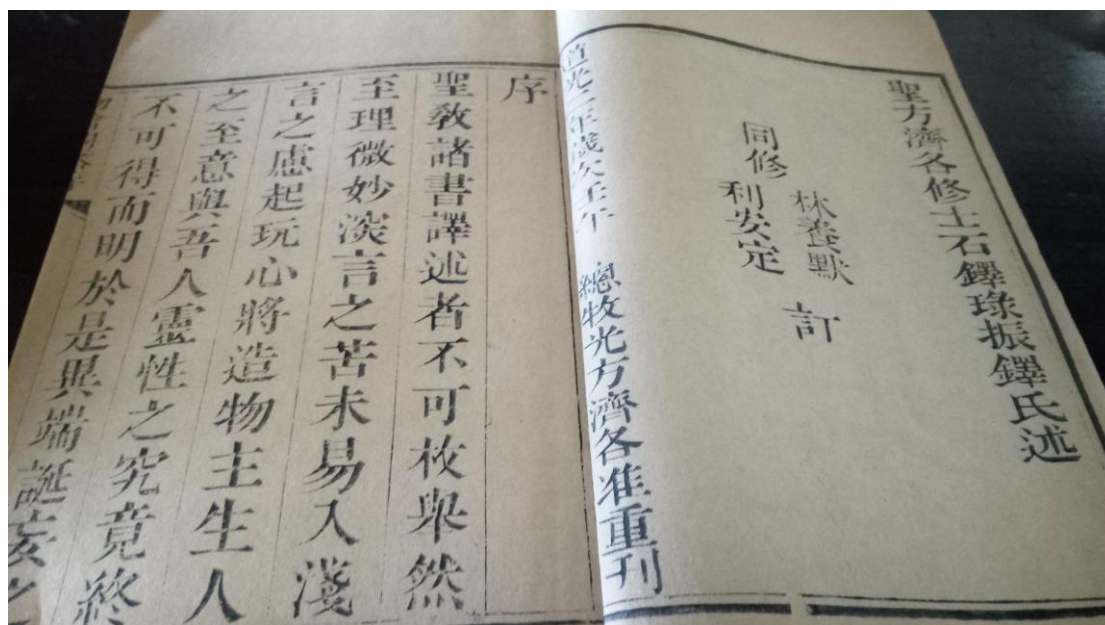 聖方濟各修士石鐸琭振鐸氏述
同修
林養默
利安定
訂
道光二年歲次壬午 總牧光方濟各准重刊
序
聖教諸書譯述者不可枚舉然
至理微妙深言之苦未易入淺
言之慮起玩心將造物主生人
之至意與吾人靈性之究竟終
不可得而明於是異端誕妄之